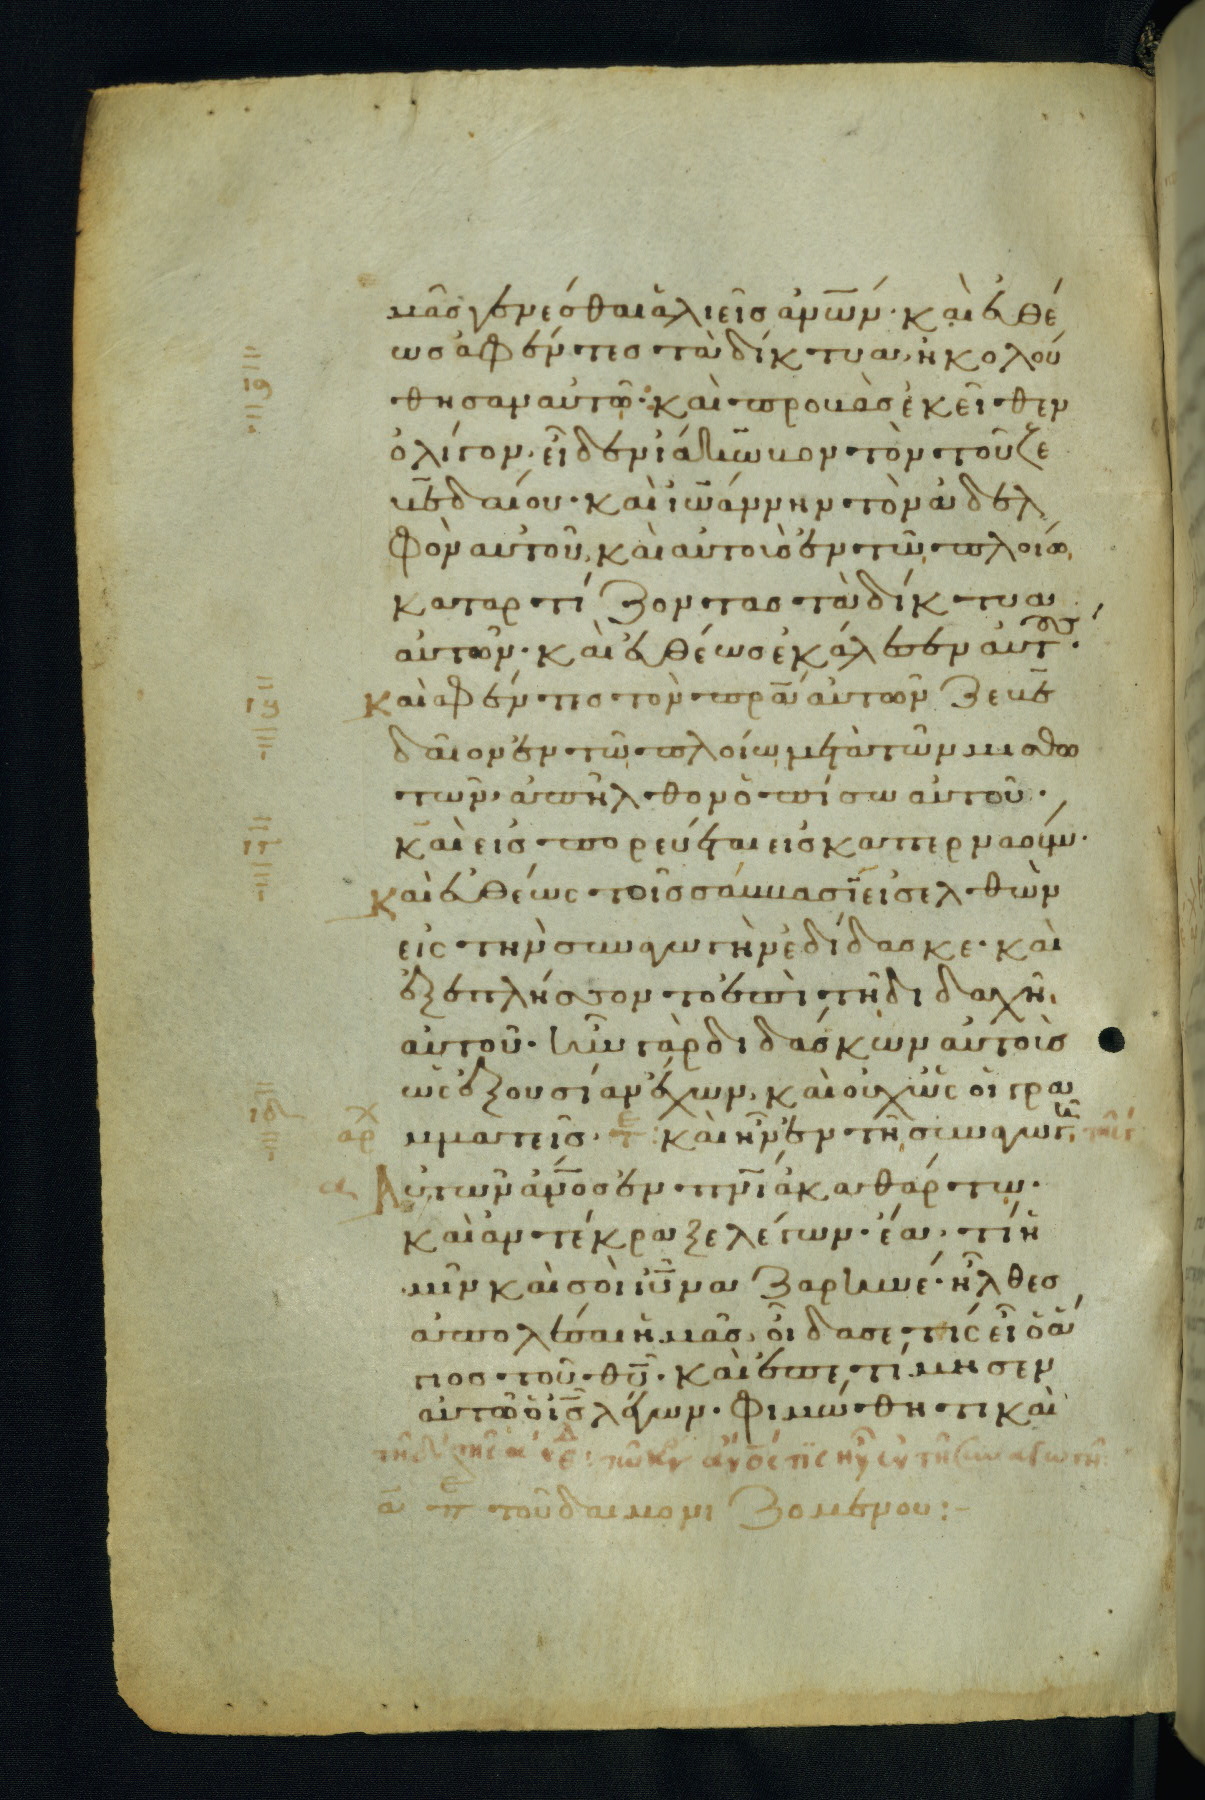 μᾶς γενέσθαι ἁλιεῖς ἀν̅ων· καὶ εὐθέ
ως ἀφέντες τὰ δίκτυα, ἠκολού
θησαν αὐτῷ· καὶ προβὰς ἐκεῖθεν
ὀλίγον, εἶδεν ἰάκωβον τὸν τοῦ ζε
βεδαίου· καὶ ἰωάννην τὸν ἀδελ
φὸν αὐτοῦ, καὶ αὐτοὺς ἐν τῷ πλοίῳ,
καταρτίζοντας τὰ δίκτυα
αὐτῶν· καὶ εὐθέως ἐκάλεσεν αὐτούς·
καὶ ἀφέντες τὸν πρ̅α αὐτῶν ζεβε
δαῖον ἐν τῷ πλοίῳ μετὰ τῶν μισθω
τῶν, ἀπῆλθον ὀπίσω αὐτοῦ·
καὶ εἰσπορεύεται εἰς καπερναούμ·
καὶ εὐθέως τοῖς σάββασιν εἰσελθὼν
εἰς τὴν συναγωγὴν ἐδίδασκε· καὶ
ἐξεπλήσσοντο ἐπὶ τῇ διδαχῇ
αὐτοῦ· ἦν γὰρ διδάσκων αὐτοὺς
ὡς ἐξουσίαν ἔχων, καὶ οὐχ ὡς οἱ γρα
αρχ μματεῖς· τε: καὶ ἦν ἐν τῇ συναγωγῇ
αὐτῶν ἀν̅ος ἐν πν̅ι ἀκαθάρτῳ·
καὶ ἀνέκραξε λέγων· ἔα, τί ἡ
μῖν καὶ σοὶ ιῦ ναζαρηνέ· ἦλθες
ἀπολέσαι ἡμᾶς, οἶδα σε τίς εἶ ὁ ἅ
γιος τοῦ θυ̅· καὶ ἐπετίμησεν
αὐτῷ ὁ ις̅ λέγων· φιμώθητι καὶ
τοῦ δαιμονιζομένου:-